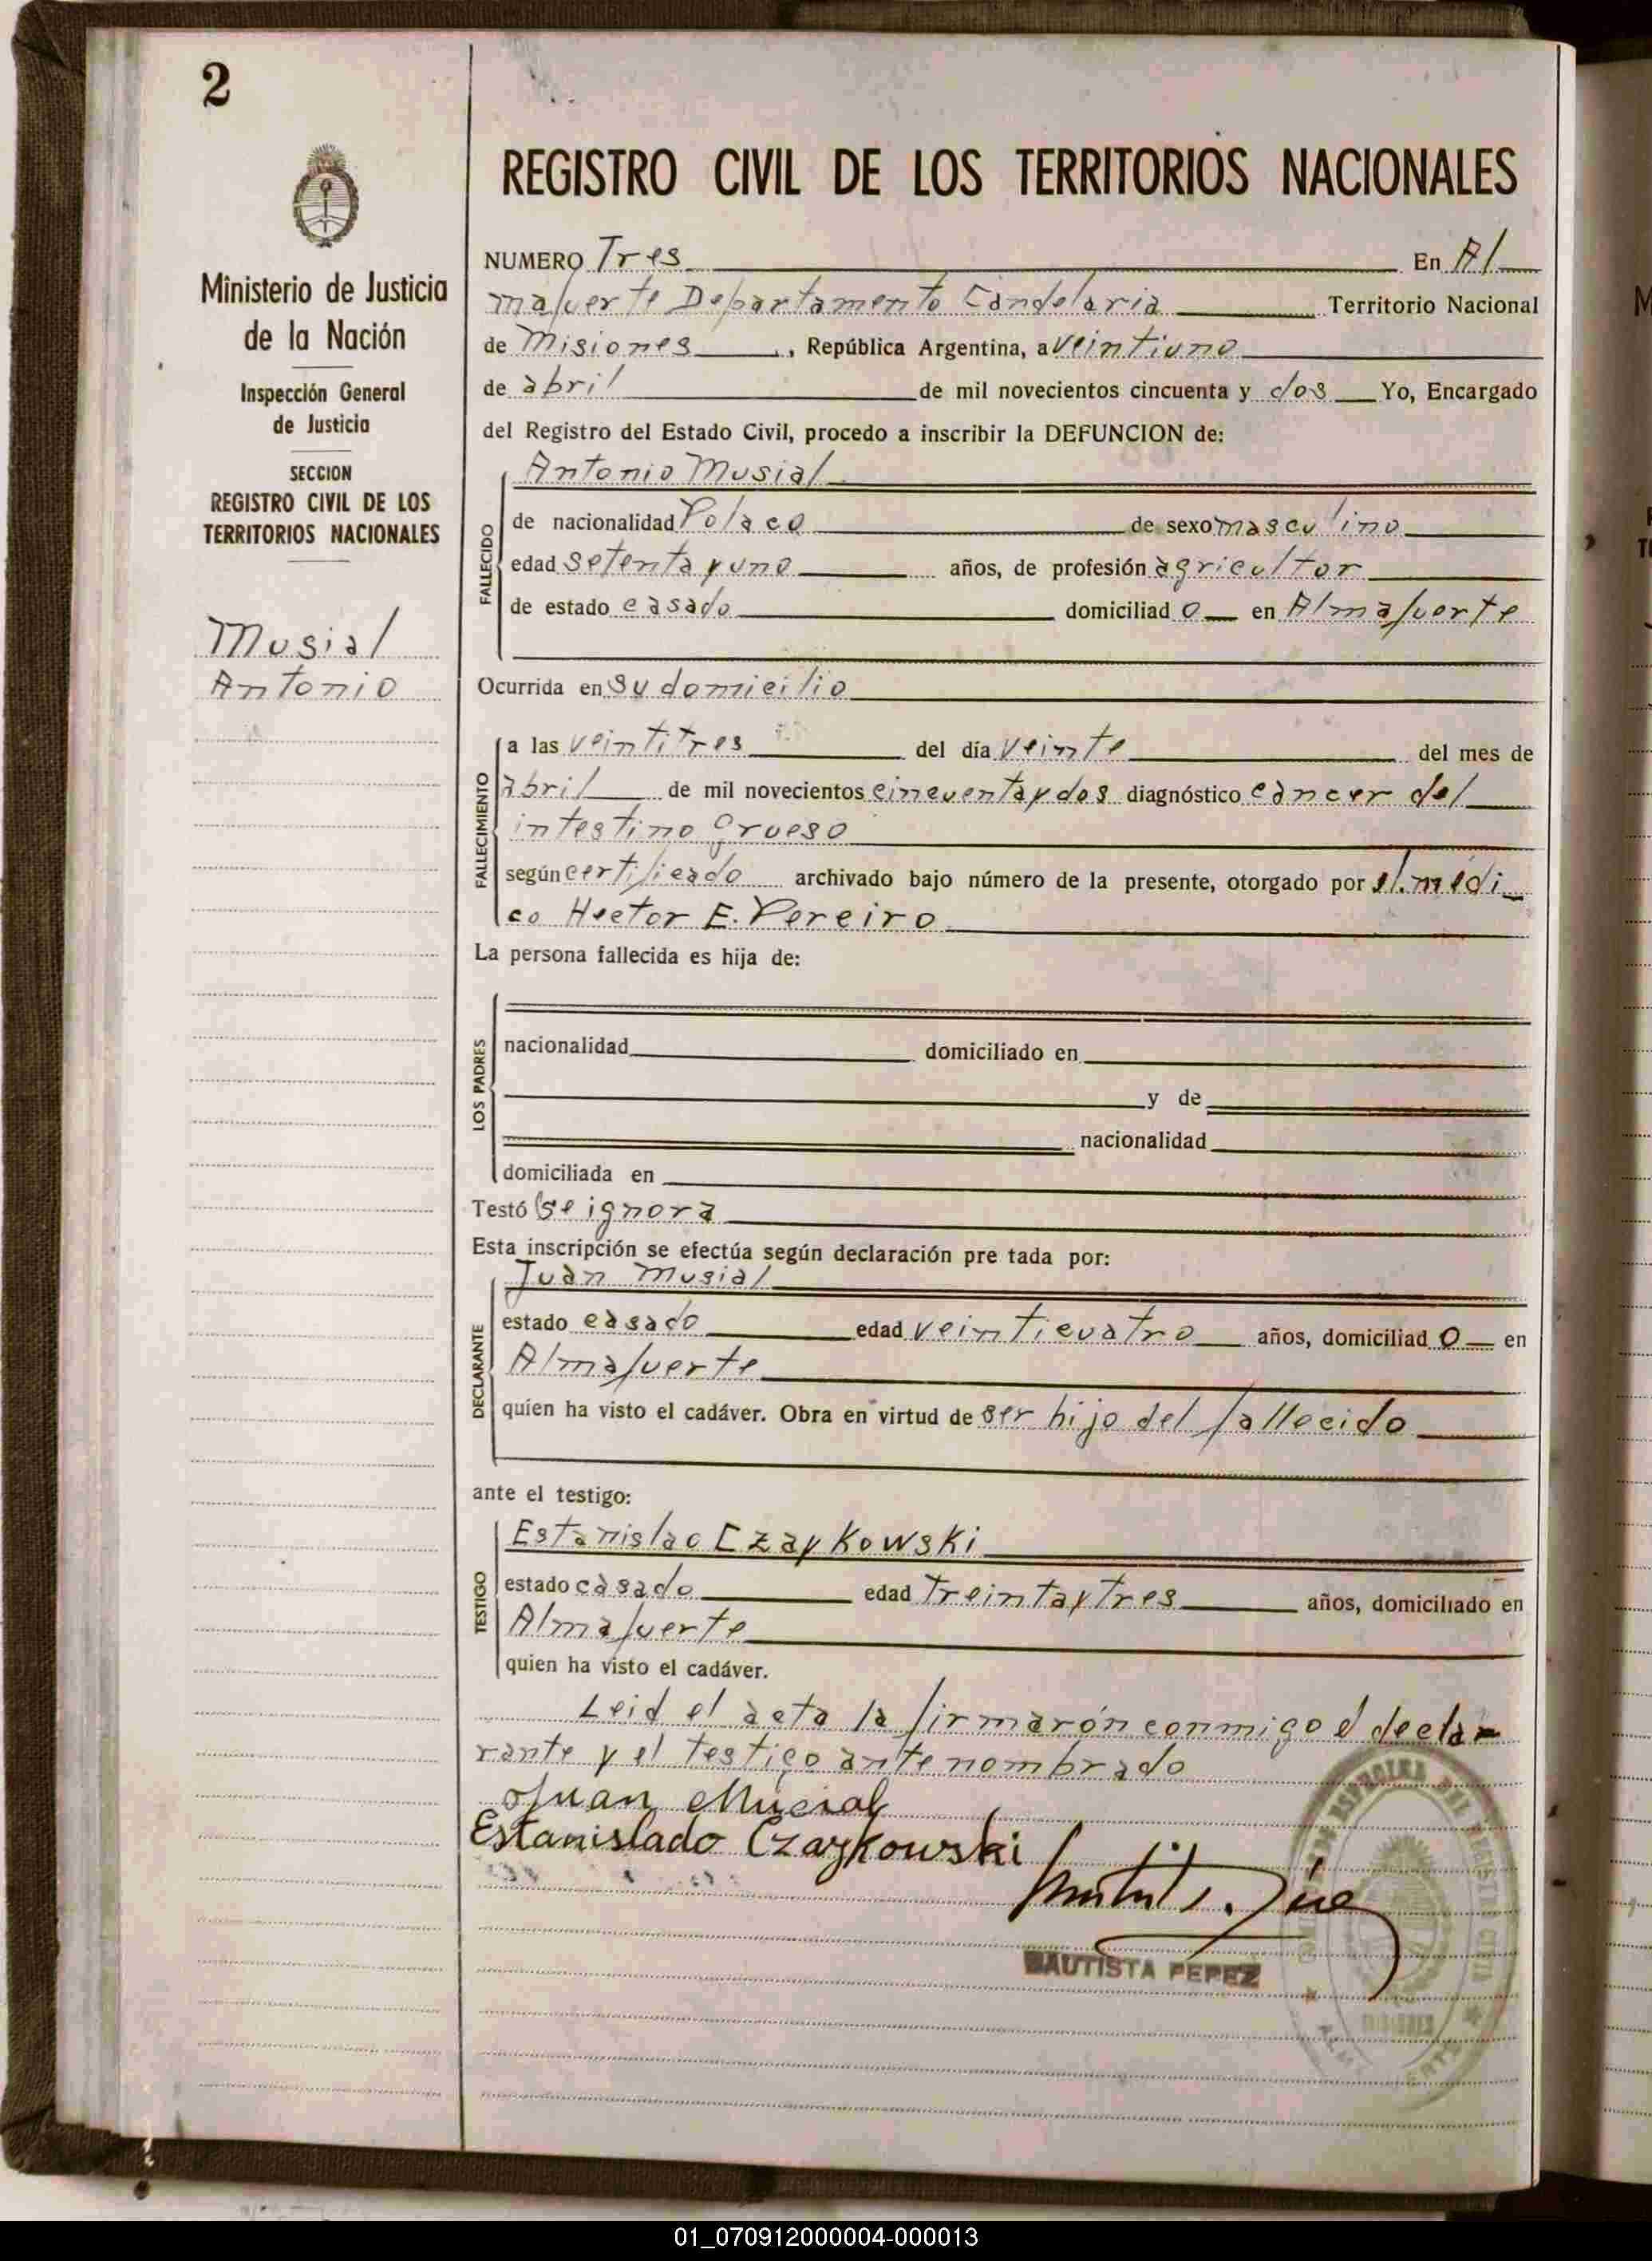 2
Ministerio de Justicia
de la Nación
Inspección General
de Justicia
SECCION
REGISTRO CIVIL DE LOS
TERRITORIOS NACIONALES
Musial
Antonio
REGISTRO CIVIL DE LOS TERRITORIOS NACIONALES
NUMERO Tres En Al
mafuerte Departamento Candelaria Territorio Nacional
de Misiones, República Argentina, a veintiuno
de abril de mil novecientos cincuenta y dos Yo, Encargado
del Registro del Estado Civil, procedo a inscribir la DEFUNCION de:
Antonio Musial
FALLECIDO
de nacionalidad Polaco de sexo masculino
edad setenta y uno años, de profesión agricultor
de estado casado domiciliad o en Almafuerte
Ocurrida en su domicilio
FALLECIMIENTO
a las veintitres del día veinte del mes de
abril de mil novecientos cincuenta y dos diagnóstico cáncer del
intestino grueso
según certificado archivado bajo número de la presente, otorgado por el médi
co Hector E. Pereiro
La persona fallecida es hija de:
LOS PADRES
nacionalidad domiciliado en
y de
nacionalidad
domiciliada en
Testó se ignora
Esta inscripción se efectúa según declaración pre tada por:
DECLARANTE
Juan Musial
estado casado edad veinticuatro años, domiciliad o en
Almafuerte
quien ha visto el cadáver. Obra en virtud de ser hijo del fallecido
ante el testigo:
TESTIGO
Estanislao Czaykowski
estado casado edad treinta y tres años, domiciliado en
Almafuerte
quien ha visto el cadáver.
Leid el acta la firmarón conmigo el decla-
rante y el testigo antenombrado
Juan Musial
Estanislado Czaykowski
BAUTISTA PEREZ
01_070912000004-000013